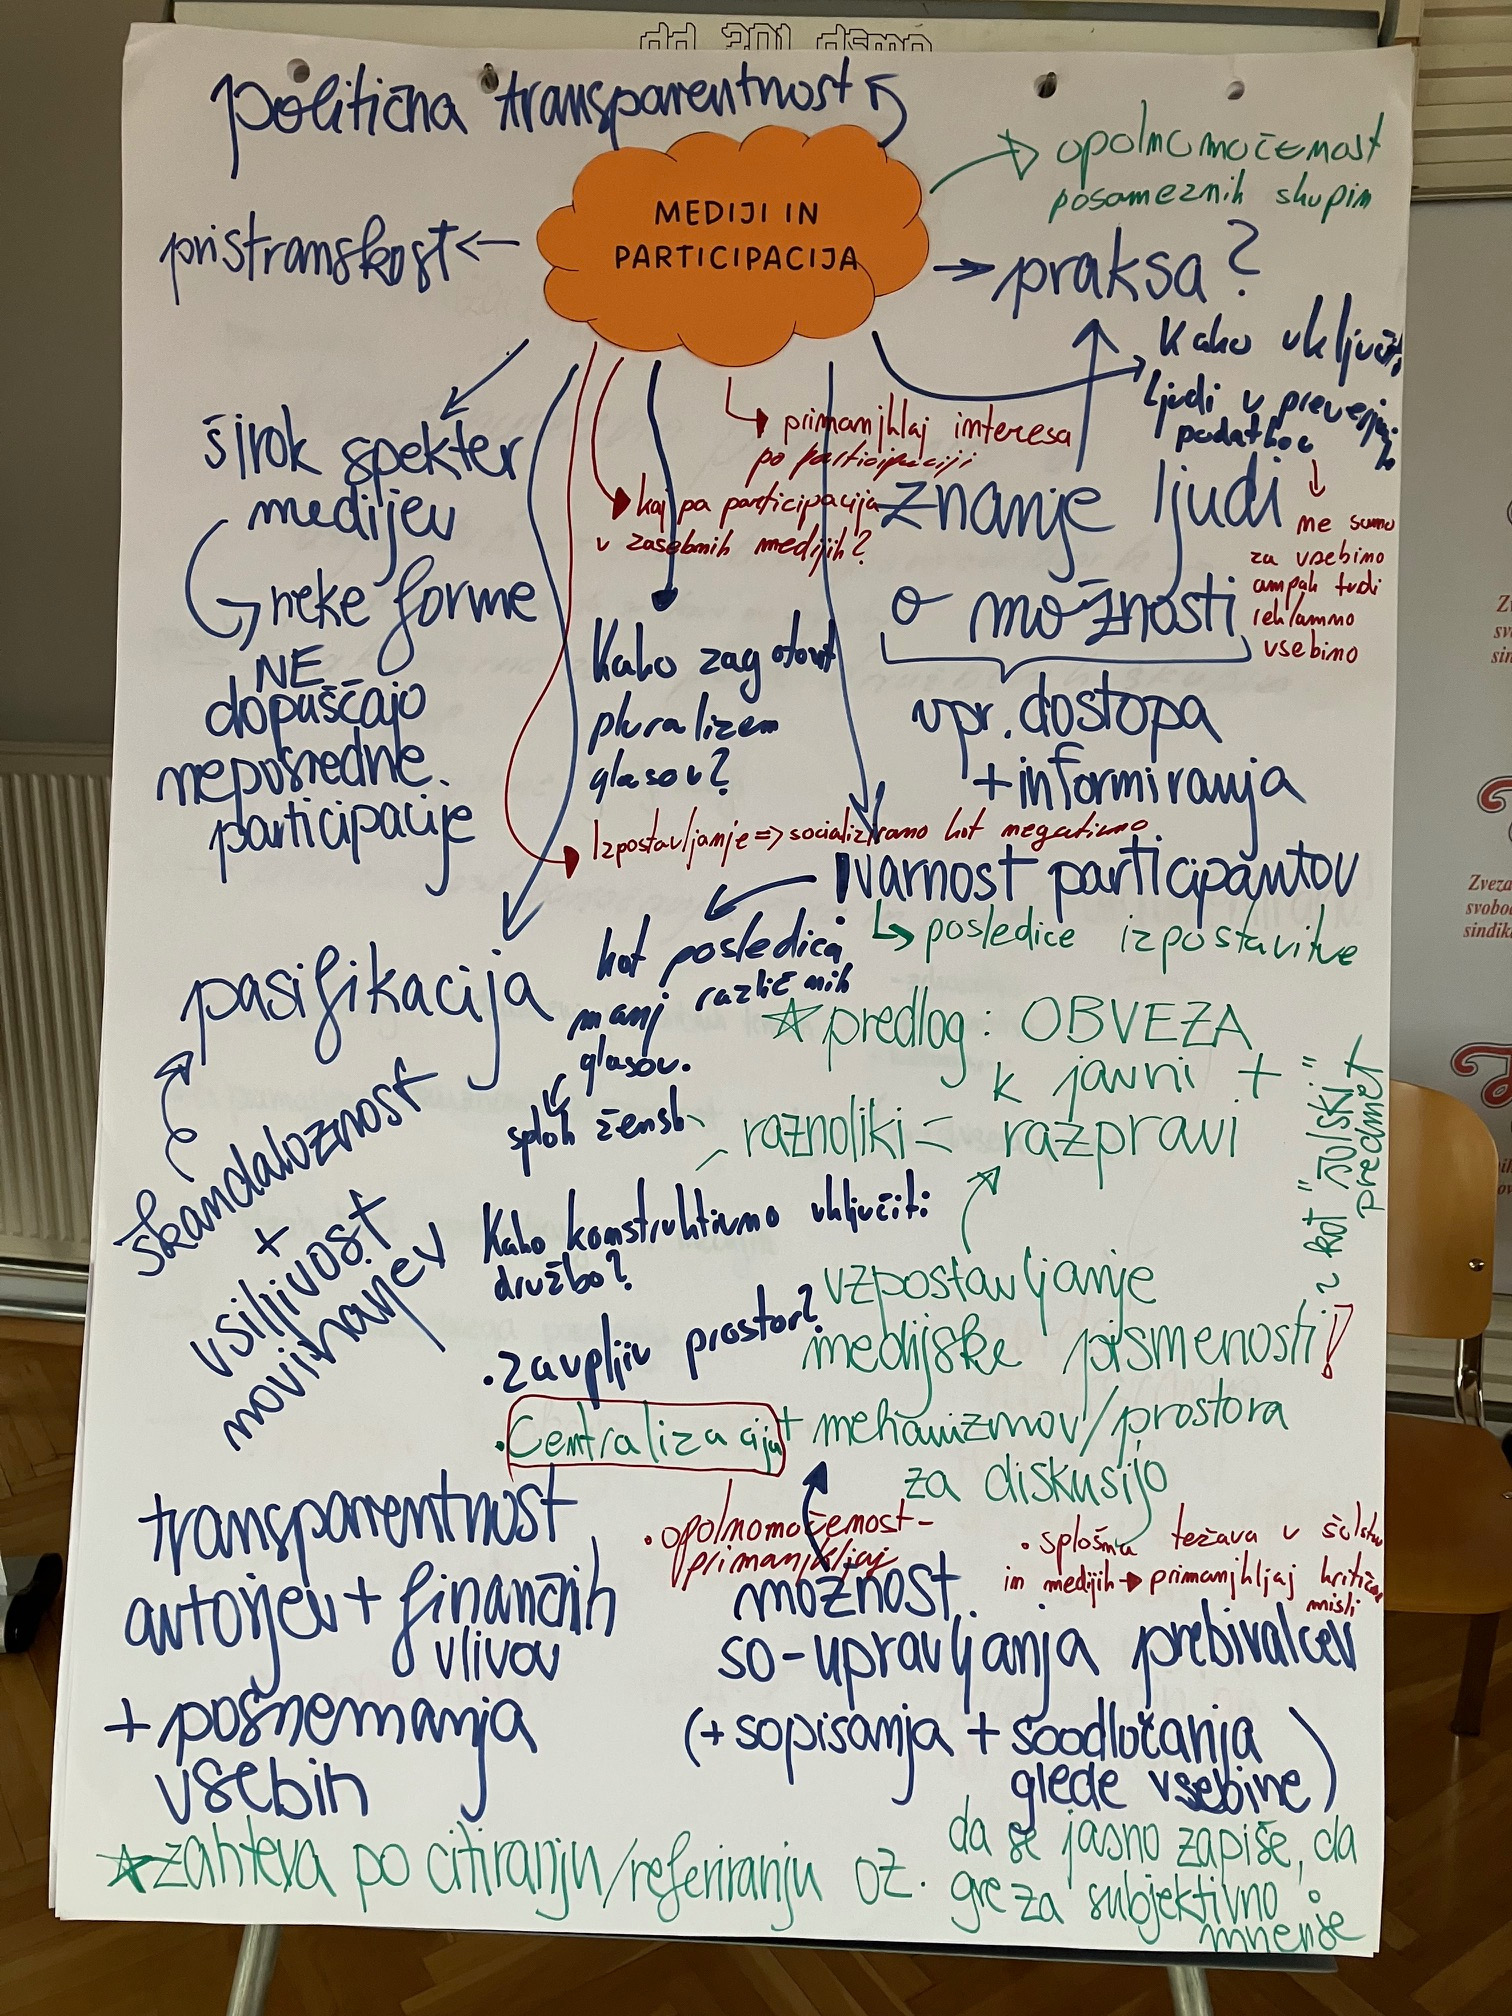 politična transparentnost
MEDIJI IN
PARTICIPACIJA
opolnomočenost
posameznih skupin
pristranskost
praksa?
Kako vključit
ljudi v preverjanje
podatkov
ne samo
za vsebino
ampak tudi
reklamno
vsebino
širok spekter
medijev
neke forme
NE
dopuščajo
neposredne
participacije
primanjkljaj interesa
po participaciji
kaj pa participacija
v zasebnih medijih?
znanje ljudi
o možnosti
vpr. dostopa
+ informiranja
Kako zagotovit
pluralizem
glasov?
Izpostavljanje => socializirano kot negativno
!varnost participantov
posledice izpostavitve
kot posledica
manj različnih
glasov.
sploh žensk
pasifikacija
škandaloznost
+
vsiljivost
novinarjev
predlog: OBVEZA
k javni +
raznoliki = razpravi
kot "šolski"
predmet
Kako konstruktivno vključiti
družbo?
• Zaupljiv prostor?
vzpostavljanje
medijske pismenosti!
• Centralizacija + mehanizmov/prostora
za diskusijo
• opolnomočenost -
primanjkljaj
• splošna težava v šolstvu
in medijih → primanjkljaj kritične
misli
transparentnost
avtorjev + finančnih
vlivov
+ posnemanja
vsebin
možnost
so-upravljanja prebivalcev
(+ sopisanja + soodločanja
glede vsebine)
zahteva po citiranju/referiranju oz. da se jasno zapiše, da
gre za subjektivno
mnenje
Zveza
svobo
sindik